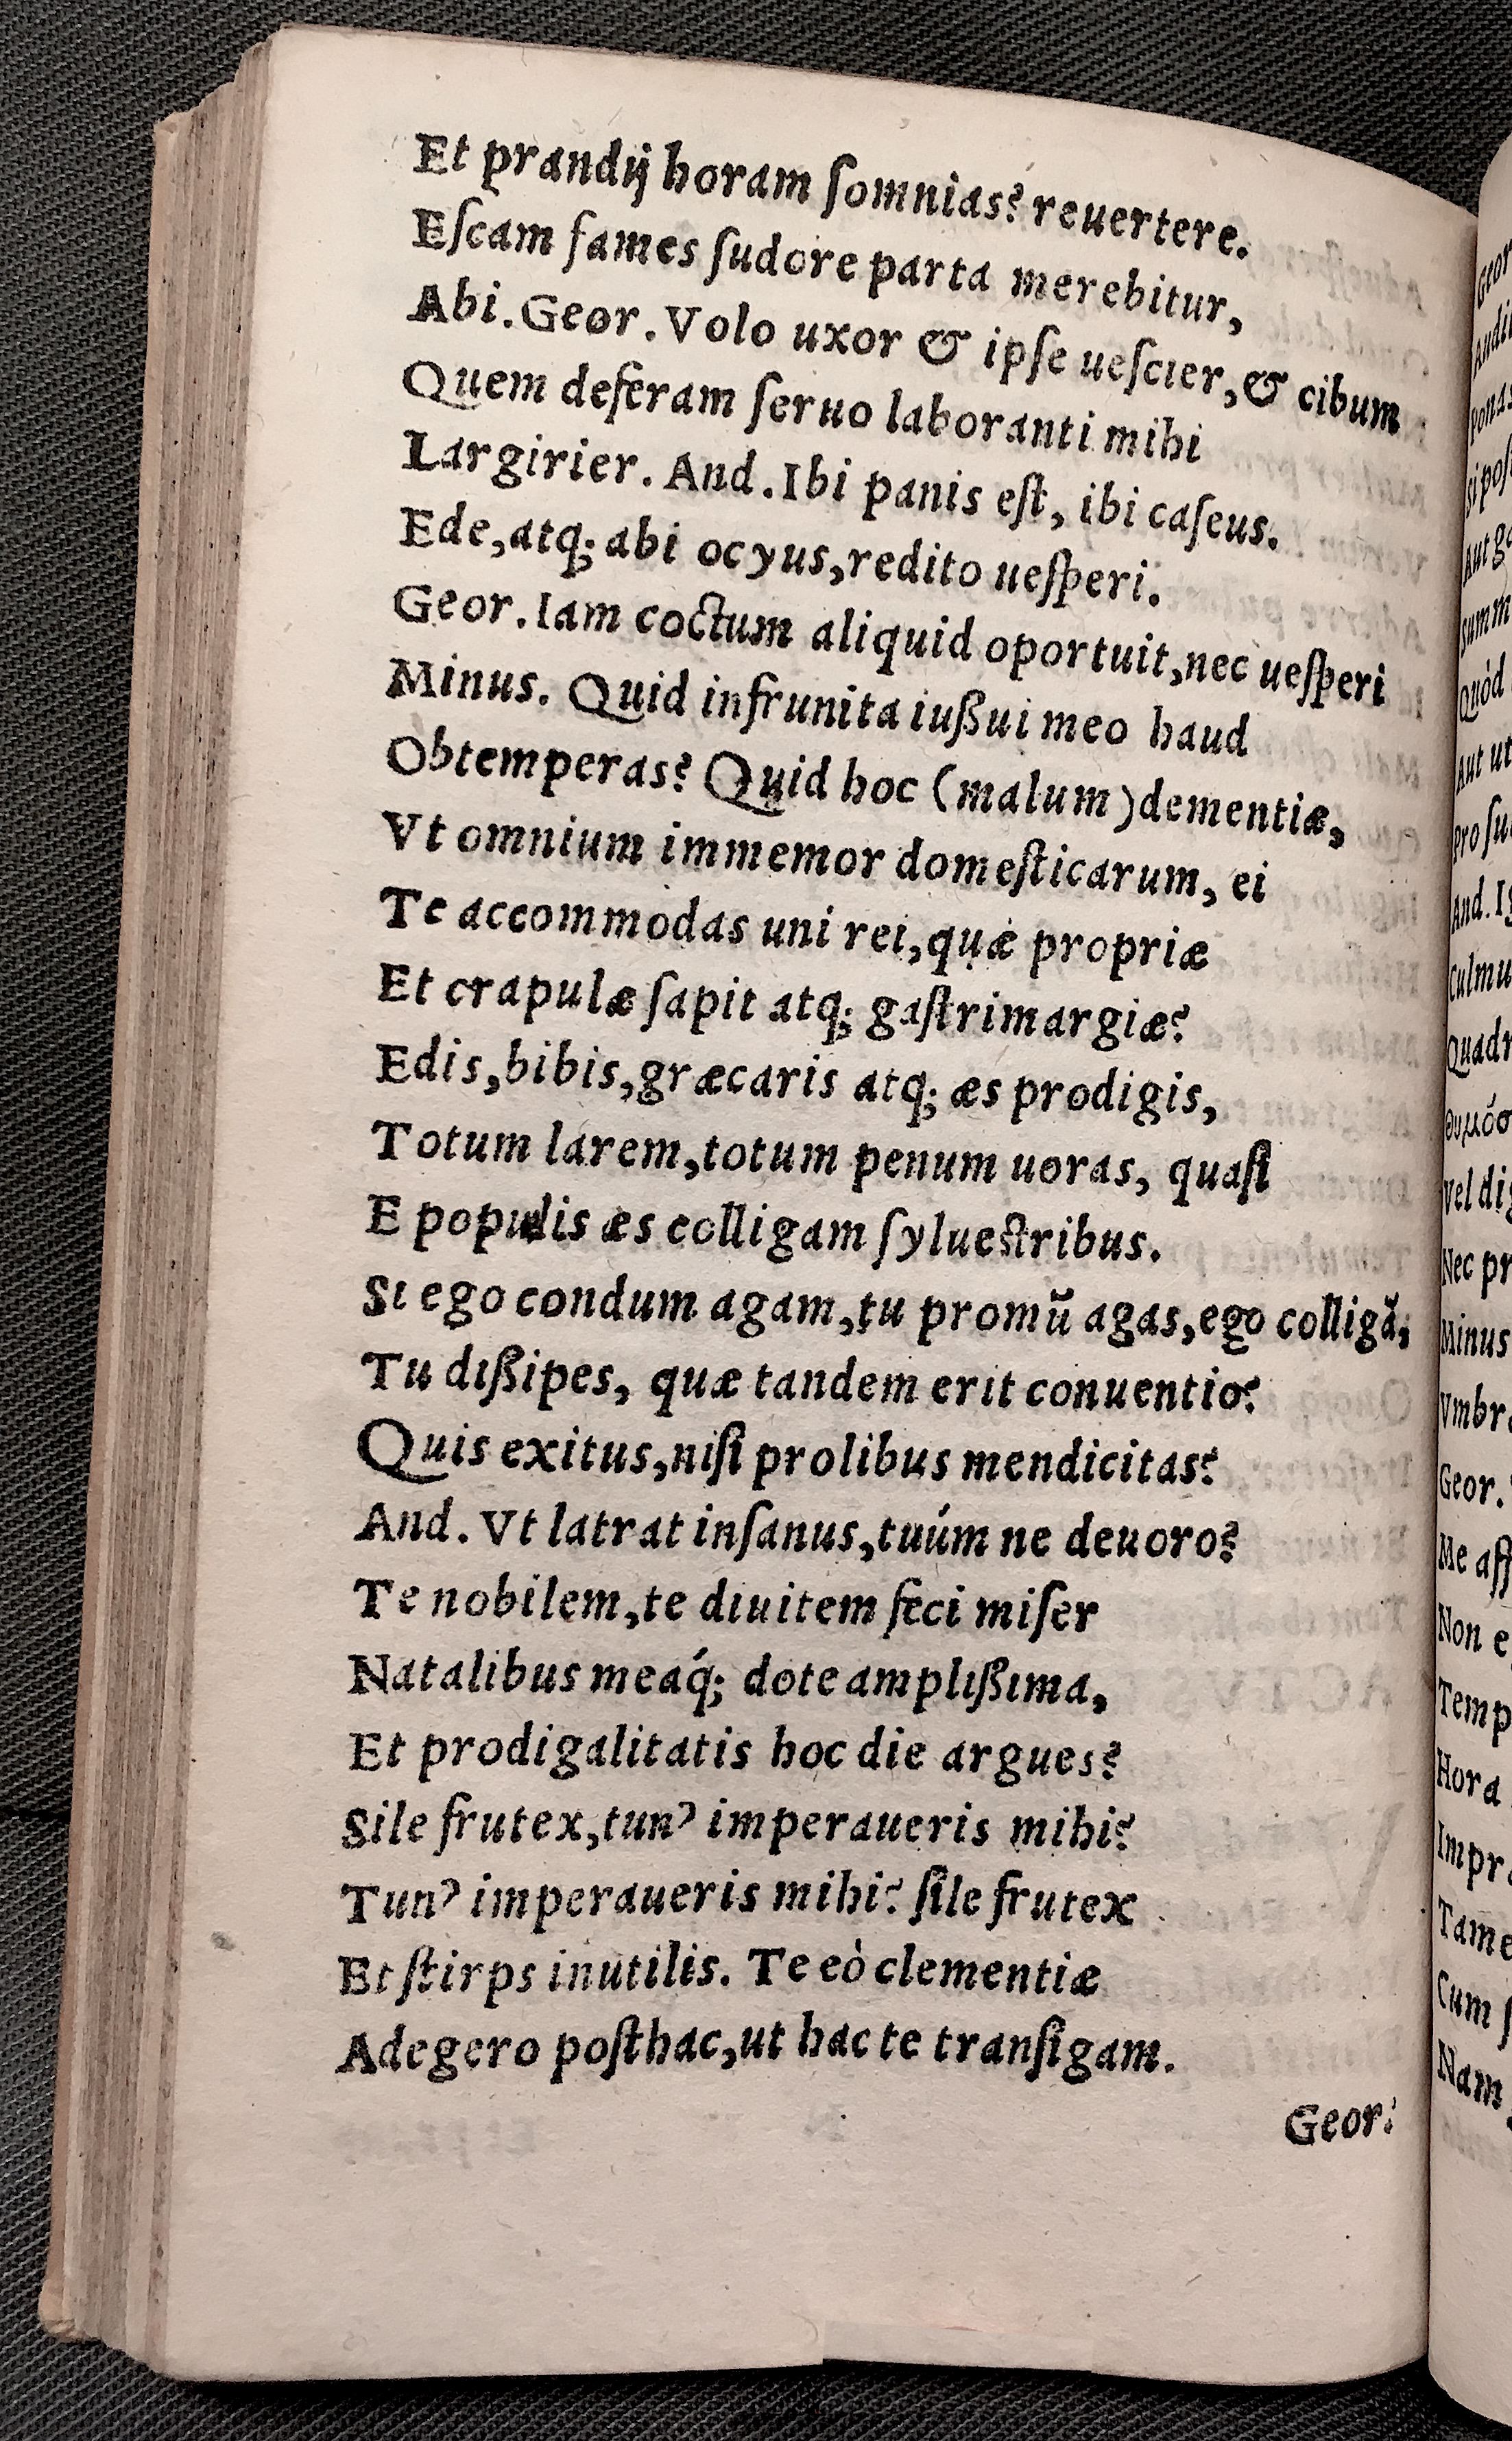 Et prandij horam ſomnias? reuertere.
Eſcam fames ſudore parta merebitur,
Abi. Geor. Volo uxor & ipſe ueſcier, & cibum
Quem deferam ſeruo laboranti mihi
Largirier. And. Ibi panis eſt, ibi caſeus.
Ede, atq; abi ocyus, redito ueſperi.
Geor. Iam coctum aliquid oportuit, nec ueſperi
Minus. Quid infrunita iußui meo haud
Obtemperas? Quid hoc (malum) dementiæ,
Vt omnium immemor domeſticarum, ei
Te accommodas uni rei, quæ propriæ
Et crapulæ ſapit atq; gaſtrimargiæ?
Edis, bibis, græcaris atq; æs prodigis,
Totum larem, totum penum uoras, quaſi
E populis æs colligam ſylueſtribus.
Si ego condum agam, tu promū agas, ego colligā,
Tu dißipes, quæ tandem erit conuentio?
Quis exitus, niſi prolibus mendicitas?
And. Vt latrat inſanus, tuúm ne deuoro?
Te nobilem, te diuitem feci miſer
Natalibus meaq́; dote amplißima,
Et prodigalitatis hoc die argues?
Sile frutex, tun' imperaueris mihi?
Tun' imperaueris mihi? ſile frutex
Et ſtirps inutilis. Te eò clementiæ
Adegero poſthac, ut hac te tranſigam.
Geor.
Geor
ponas
Aut
Quòd
Aut ut
And.
Nec
Minus
Geor.
Me
Non
Hora
Cum
Nam